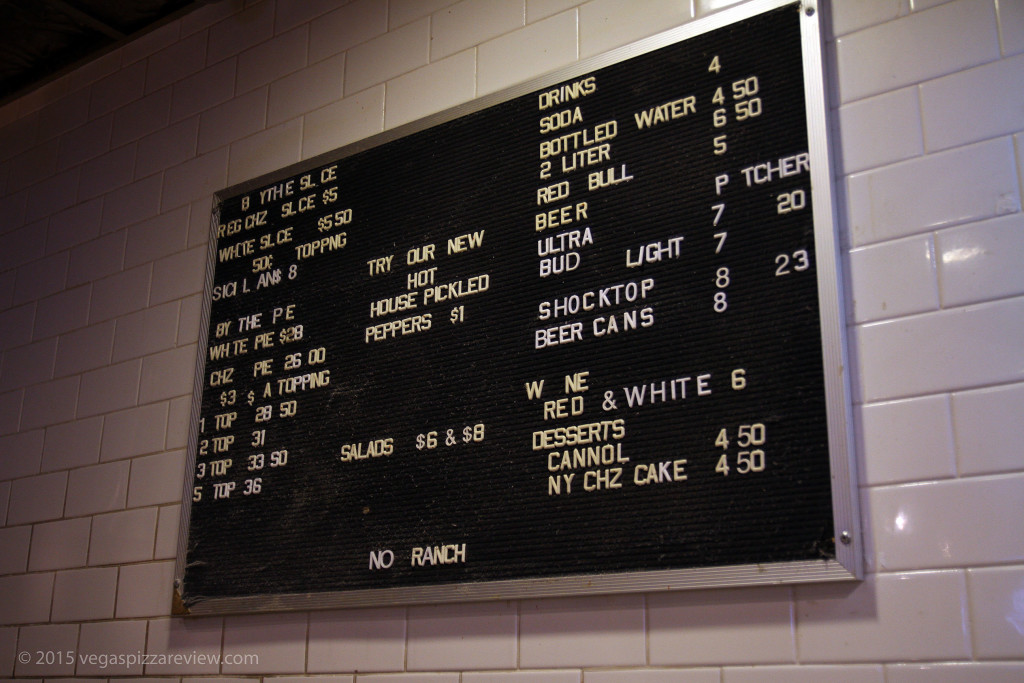 B YTHE SL CE
REG CHZ SL CE $5
WHITE SL CE $5 50
50¢ TOPPNG
SICI L AN$ 8
BY THE P E
WHI TE PIE $28
CHZ PIE 26 00
$3 $ A TOPPING
1 TOP 28 50
2 TOP 31
3 TOP 33 50
5 TOP 36
TRY OUR NEW
HOT
HOUSE PICKLED
PEPPERS $1
SALADS $6 & $8
NO RANCH
DRINKS
SODA 4
BOTTLED WATER 4 50
2 LITER 6 50
RED BULL 5
BEER P TCHER
ULTRA 7 20
BUD LIGHT 7
SHOCKTOP 8 23
BEER CANS 8
W NE
RED & WHITE 6
DESSERTS
CANNOL 4 50
NY CHZ CAKE 4 50
© 2015 vegaspizzareview.com